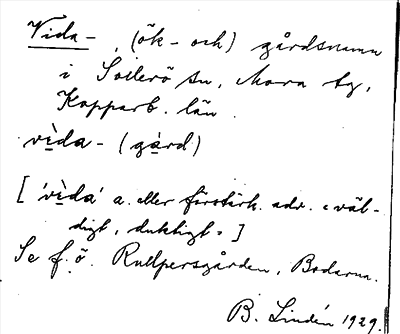 Vida-, (ök- och) gårdsnamn
i Sollerö sn, Mora tg,
Kopparb. län.
vìda- (gård)
['vìda' a. eller förstärk. adv. = väl-
digt, duktigt.]
Se f.ö. Rullpersgården, Bodarna.
B. Lindén 1929.